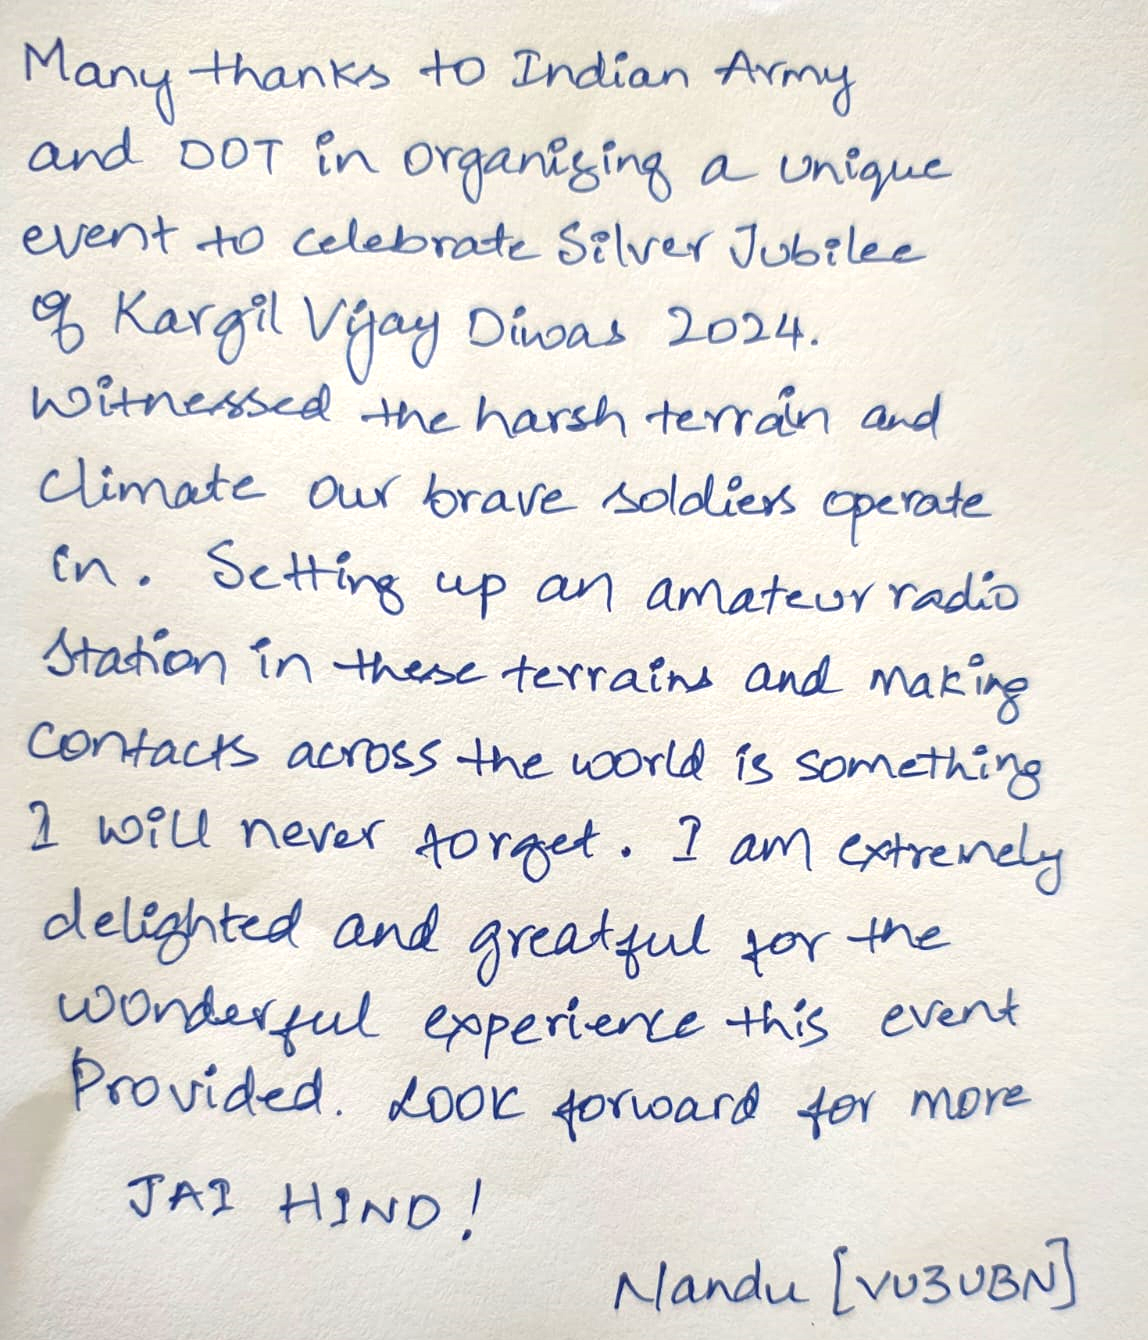 Many thanks to Indian Army
and DOT in organizing a unique
event to celebrate Silver Jubilee
of Kargil Vijay Diwas 2024.
Witnessed the harsh terrain and
climate our brave soldiers operate
in. Setting up an amateur radio
station in these terrains and making
contacts across the world is something
I will never forget. I am extremely
delighted and greatful for the
wonderful experience this event
Provided. Look forward for more
JAI HIND!
Nandu [VU3UBN]